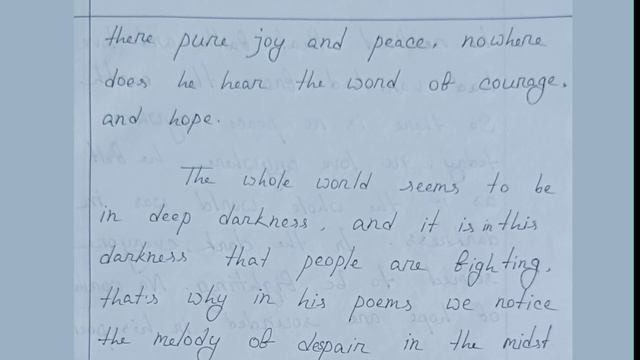 there pure joy and peace, nowhere
does he hear the word of courage.
and hope.
The whole world seems to be
in deep darkness, and it is in this
darkness that people are fighting,
that's why in his poems we notice
the melody of despair in the midst